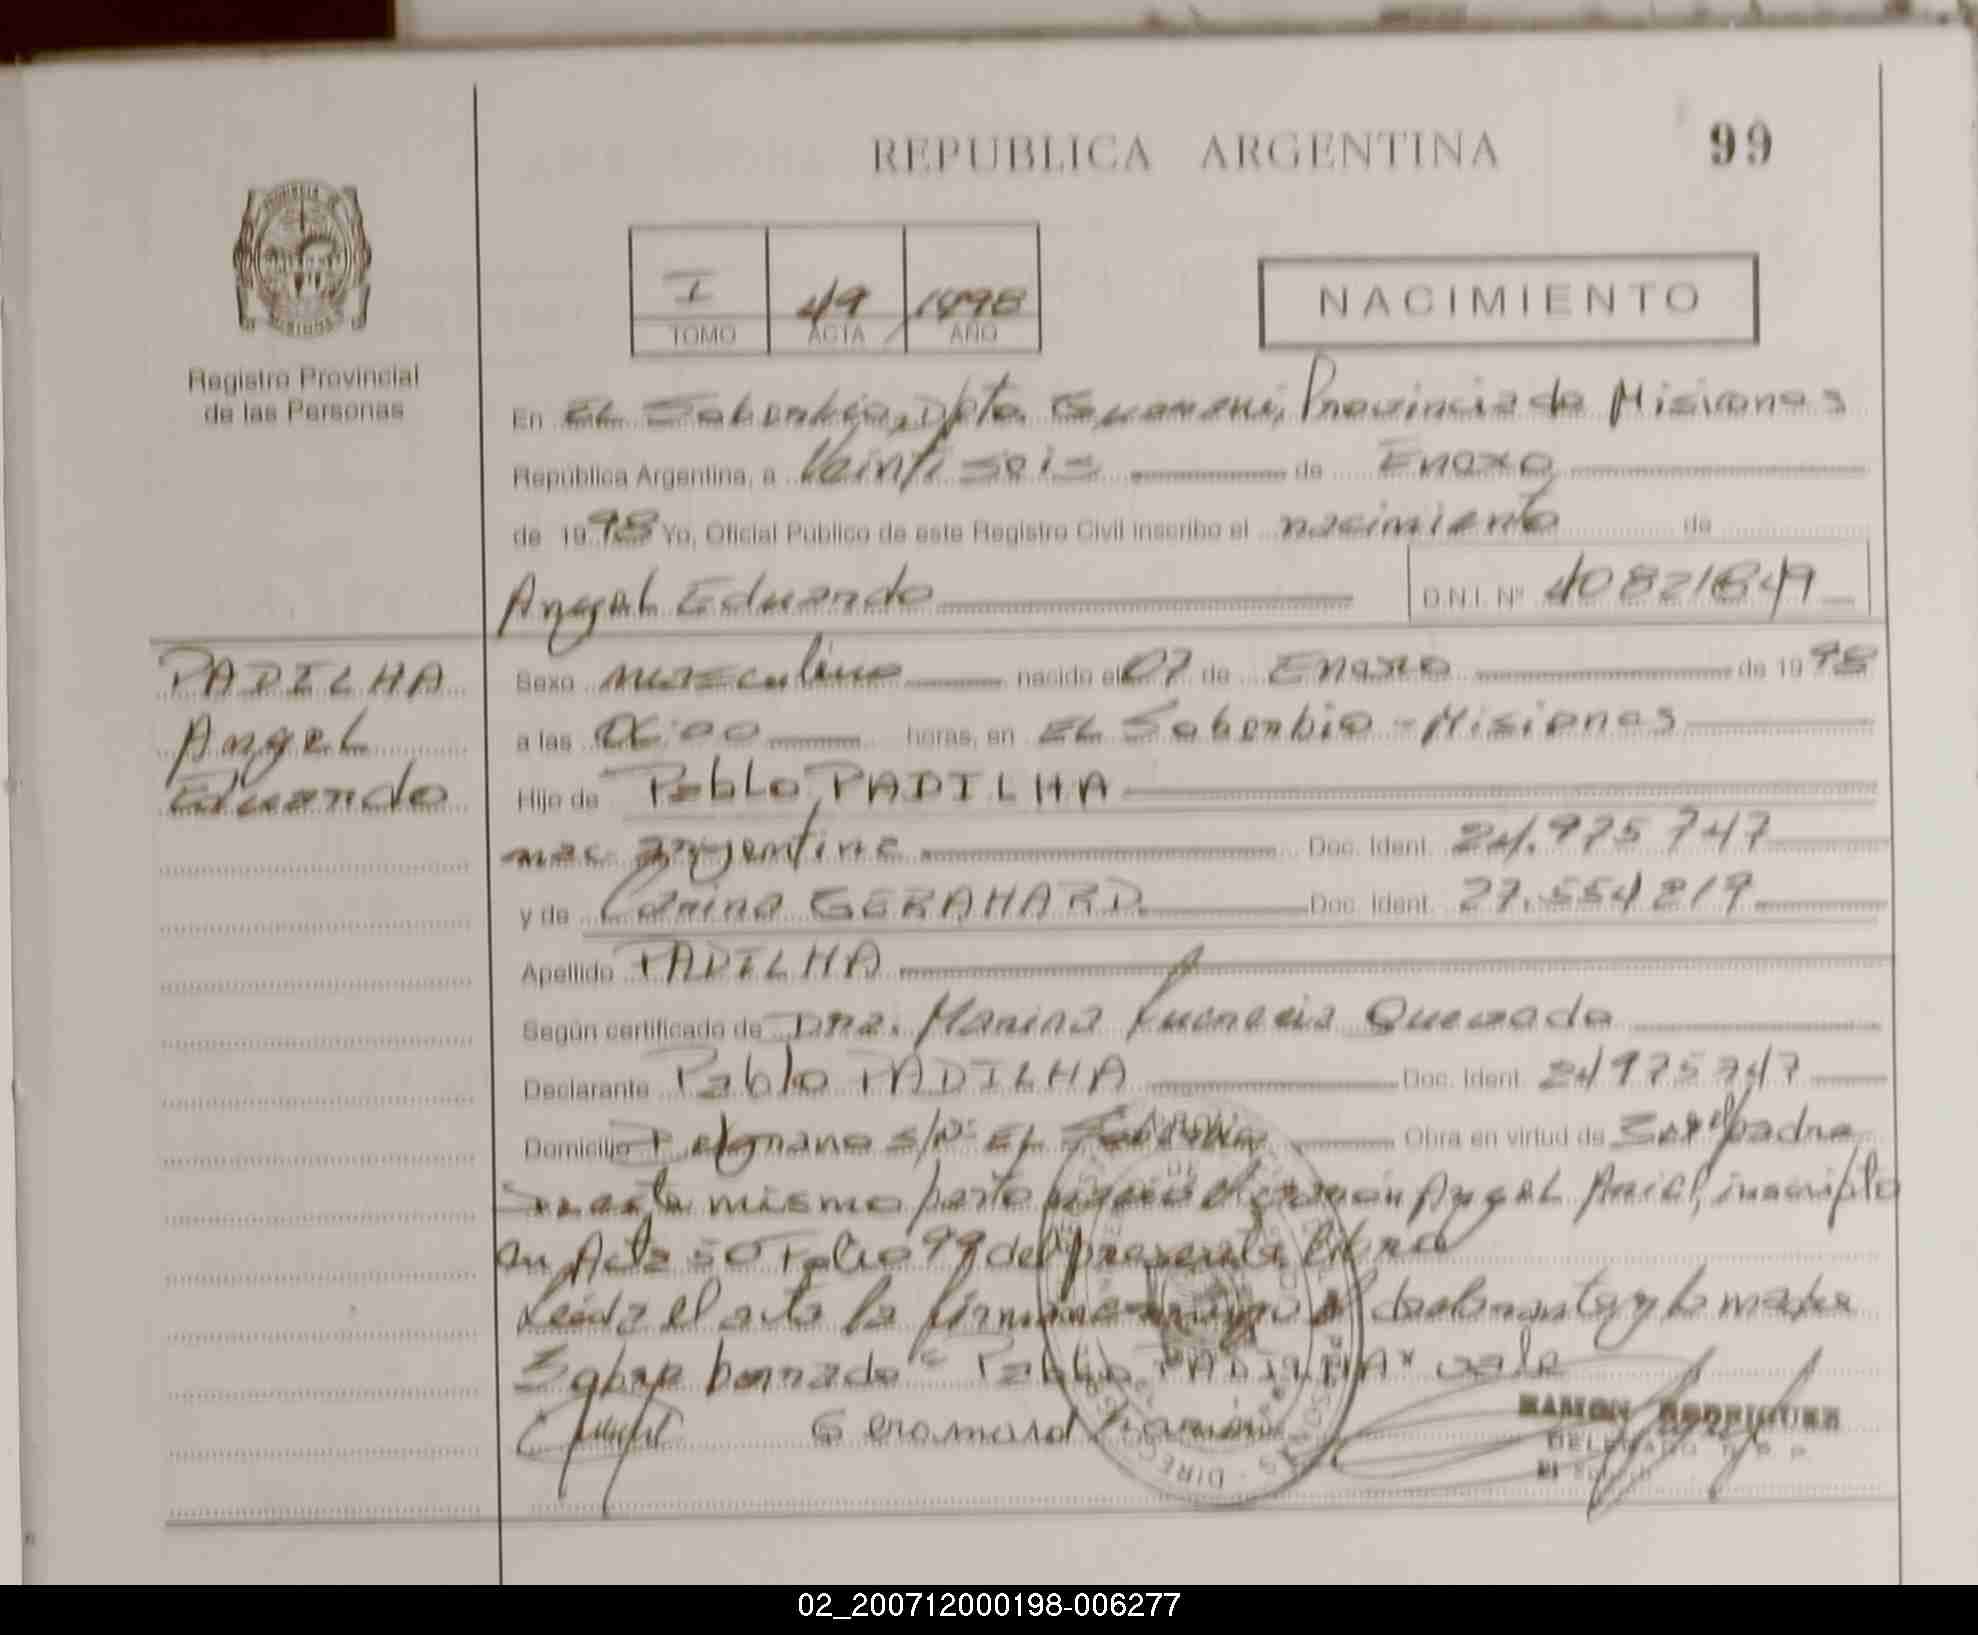 REPUBLICA ARGENTINA
99
I
49
1998
TOMO
ACTA
AÑO
NACIMIENTO
Registro Provincial
de las Personas
En El Soberbio, Dpto. Guarani, Provincia de Misiones
República Argentina, a Veintiseis de Enero
de 1998 Yo, Oficial Público de este Registro Civil inscribo el nacimiento de
Angel Eduardo
D.N.I. Nº 40821849
PADILHA
Angel
Eduardo
Sexo masculino nacido el 07 de Enero de 1998
a las horas, en El Soberbio - Misiones
Hijo de Pablo PADILHA
nac argentina Doc. Ident. 24.975 747
y de Carina GERAHARD Doc. Ident. 27.554219
Apellido PADILHA
Según certificado de Dra. Marina Quezada
Declarante Pablo PADILHA Doc. Ident. 24975747
Domicilio Belgrano s/nº El Soberbio Obra en virtud de Ser el padre
En este mismo parto nació el varón Angel Ariel, inscripto
en Acta 50 Folio 99 del presente libro
Leida el acta la firman conmigo el declarante y la madre
Sobre borrado "Pablo PADILHA" vale
RAMON RODRIGUEZ
DELEGADO R. P. P.
El
02_200712000198-006277